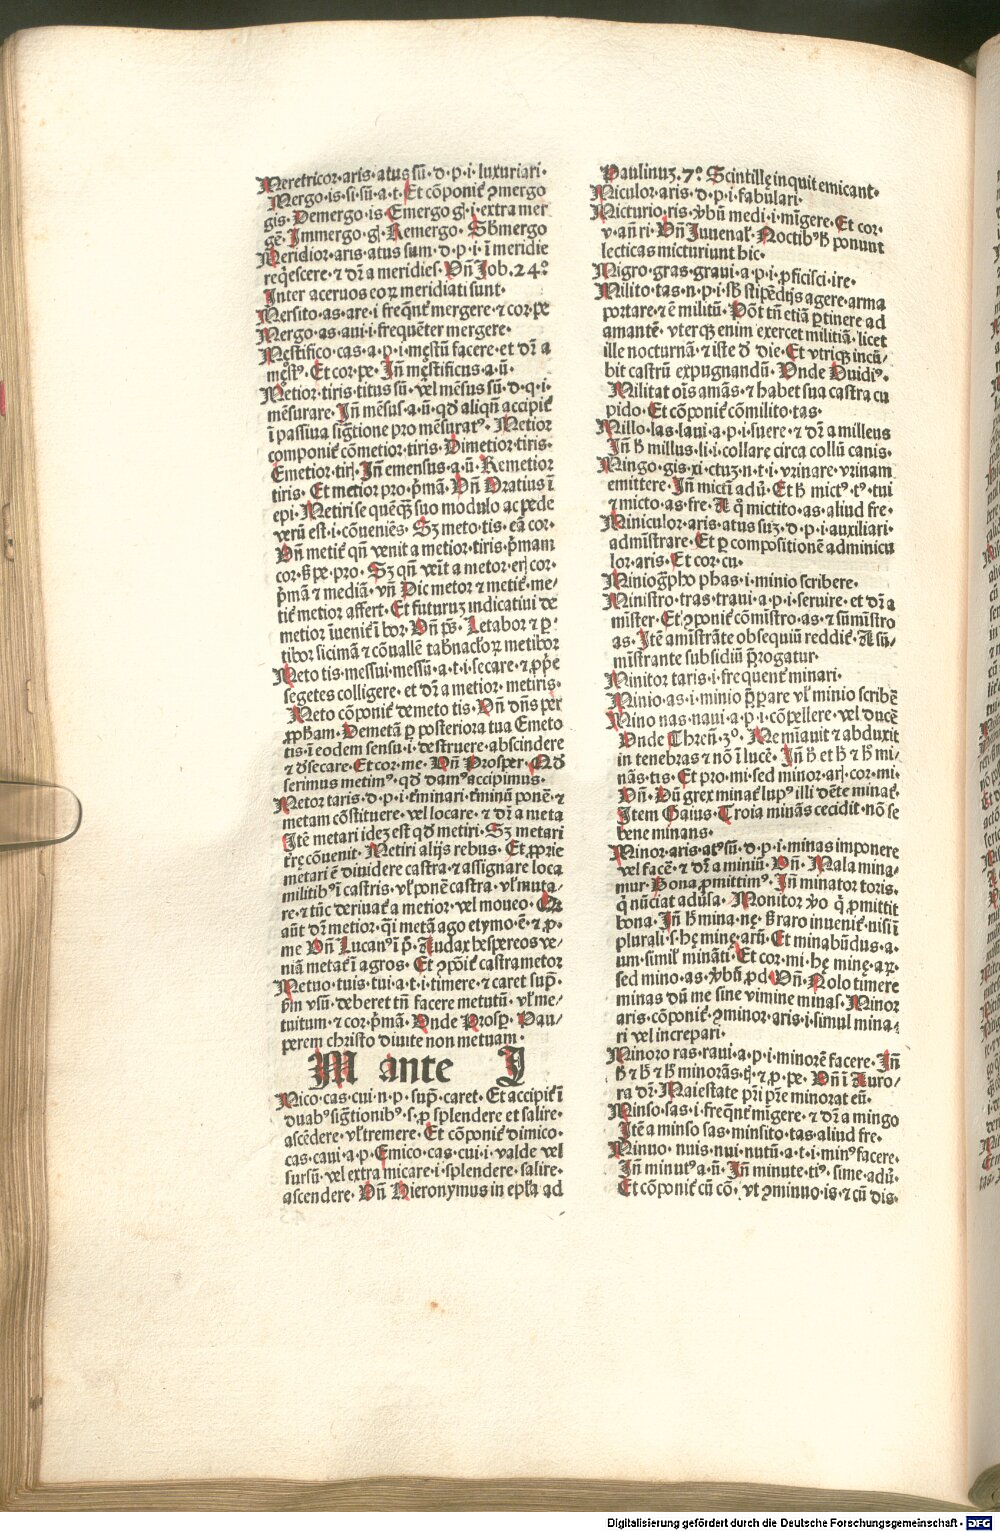 Meretricor·aris·atus sū·d·p·i·luxuriari·
Mergo·is·si·sū·a·t·Et cōponit̄ ꝯmergo
gis·Demergo·is·Emergo gꝭ·i·extra mer
gē·Immergo·gꝭ·Remergo·Sb̄mergo
Meridior·aris·atus sum·d·p·i·ī meridie
req̄escere·⁊ dr̄ a meridies·Vn̄ Job·24°
Inter aceruos eoꝝ meridiati sunt·
Mersito·as·are·i frequēt̄ mergere·⁊ cor·pe
Mergo·as·aui·i frequēter mergere·
Męstifico·cas·a·p·i·męstū facere·et dr̄ a
męstꝰ·Et cor·pe·Jn̄ męstificus·a·ū·
Metior·tiris·titus sū·vel mēsus sū·d·q·i·
mēsurare·Jn̄ mēsus·a·ū·qd̄ aliqn̄ accipit̄
ī passiua sigt̄ione pro mēsuratꝰ·Metior
componit̄ cōmetior·tiris·Dimetior·tiris·
Emetior·tirꝭ·Jn̄ emensus·a·ū·Remetior
tiris·Et metior pro·p̄mā·Vn̄ Oratius ī
epi·Metiri se quēqꝫ suo modulo ac pede
verū est·i·cōueniēs·Sꝫ meto·tis·eā cor·
Vn̄ metit̄ qn̄ venit a metior·tiris·p̄mam
cor·ß pe·pro·Sꝫ qn̄ veīt a metor·erꝭ cor·
p̄mā ⁊ mediā·vn̄ Dic metor ⁊ metit̄·me-
tit̄ metior affert·Et futuruꝫ indicatiui de
metior īuenit̄ ī bor·Vn̄ ps̄·Letabor ⁊ p·
tibor sicimā ⁊ cōuallē tab̄nacl̄oꝝ metibor
Meto tis·messui·messū·a·t·i·secare·⁊ ꝓp̄e
segetes colligere·et dr̄ a metior·metiris·
Meto cōponit̄ demeto tis·Vn̄ dn̄s per
ꝓph̄am·Demetā ꝑ posteriora tua Emeto
tis·ī eodem sensu·i·destruere·abscindere
⁊ d̄secare·Et cor·me·Vn̄ Prosper·Qd̄
serimus metimꝰ·qd̄ damꝰ accipimus·
Metor taris·d·p·i·t̄minari·t̄minū ponē·⁊
metam cōstituere·vel locare·⁊ dr̄ a meta
Jtē metari ideꝫ est qd̄ metiri·Sꝫ metari
t̄re cōuenit·Metiri alijs rebus·Et ꝓprie
metari ē diuidere castra·⁊ assignare loca
militibꝰ ī castris·vl̄ ponē castra·vl̄ muta/
re·⁊ tūc deriuat̄ a metior·vel moueo·Qr
aūt dr̄ metior·q̄i metā ago etymo·ē·⁊ ꝓ·
me Vn̄ Lucanꝰ ī p̄·Audax hespereos ve-
niā metat̄ ī agros·Et ꝯpōit̄ castrametor
Metuo·tuis·tui·a·t·i·timere·⁊ caret sup̄·
p̄in vsū·deberet tn̄ facere metutū·vl̄ me/
tuitum·⁊ cor·p̄mā·Vnde Prosꝑ·Pau-
perem christo diuite non metuam·
M ante J
Mico·cas·cui·n·p·sup̄·caret·Et accipit̄ ī
duabꝰ sigt̄ionibꝰ·s·ꝓ splendere et salire·
ascēdere·vl̄ tremere·Et cōponit̄ dimico·
cas·caui·a·p·Emico·cas·cui·i·valde vel
sursū·vel extra micare·i·splendere·salire·
ascendere·Vn̄ Hieronymus in epl̄a ad
Paulinuꝫ.7°·Scintillę inquit emicant·
Miculor·aris·d·p·i·fabulari·
Micturio·ris·v̄bū medi·i·mīgere·Et cor·
v·an̄ ri·Vn̄ Juuenal̄·Noctibꝰ h̄ ponunt
lecticas micturiunt hic·
Migro·gras·graui·a·p·i·ꝓficisci·ire·
Milito·tas·n·p·i·sb̄ stipēdijs agere·arma
portare·⁊ ē militū·Pōt tn̄ etiā ꝑtinere ad
amantē·vterqꝫ enim exercet militiā·licet
ille nocturnā·⁊ iste d̄ die·Et vtriqꝫ incū/
bit castrū expugnandū·Vnde Ouidiꝰ·
Militat oīs amās·⁊ habet sua castra cu
pido·Et cōponit̄ cōmilito·tas·
Millo·las·laui·a·p·i·suere·⁊ dr̄ a milleus
Jn̄ h̄ millus·li·i·collare circa collū canis·
Mingo·gis·xi·ctuꝫ·n·t·i·vrinare·vrinam
emittere·Jn̄ mictī adū·Et h̄ mictꝰ·tꝰ·tui
⁊ micto·as·fre·A q̊ mictito·as·aliud fre·
Miniculor·aris·atus suꝫ·d·p·i·auxiliari·
admīstrare·Et ꝑ compositionē adminicu
lor·aris·Et cor·cu·
Miniogp̄ho phas·i·minio scribere·
Ministro·tras·traui·a·p·i·seruire·et dr̄ a
mīster·Et ꝯponit̄ cōmīstro·as·⁊ sūmīstro
as·Jtē amīstrāte obsequiū reddit̄·A sū/
mīstrante subsidiū p̄rogatur·
Minitor taris·i·frequent̄ minari·
Minio·as·i·minio p̄ꝑare vl̄ minio scribē
Mino nas·naui·a·p·i·cōpellere·vel ducē
Vnde Thren̄·3°·Me miauit ⁊ abduxit
in tenebras ⁊ nō ī lucē·Jn̄ h̄ et h̄ ⁊ h̄ mi-
nās·tis·Et pro·mi·sed minor·arꝭ·cor·mi·
Vn̄·Dū grex minat̄ lupꝰ illi dēte minat̄·
Jtem Gaius·Troia minās cecidit·nō se
bene minans·
Minor·aris·atꝰ sū·d·p·i·minas imponere
vel facē·⁊ dr̄ a miniū·Vn̄·Mala mina-
mur·Bona ꝓmittimꝰ·Jn̄ minator toris·
q̄ nūciat adu̇sa·Monitor v̊o q̄ ꝓmittit
bona·Jn̄ h̄ mina·nę·ß raro inuenit̄·nisi ī
plurali·s·hę minę·arū·Et minabūdus·a·
um·simil̄ mināti·Et cor·mi·hę minę·aꝝ·
sed mino·as·v̄bū ꝓd·Vn̄·Nolo timere
minas dū me sine vimine minas·Minor
aris·cōponit̄·ꝯminor·aris·i·simul mina⹀
ri vel increpari·
Minoro ras·raui·a·p·i·minorē facere·Jn̄
h̄ ⁊ h̄ ⁊ h̄ minorās·tꝭ·⁊ ꝓ·pe·Vn̄ ī Auro/
ra dr̄·Maiestate pr̄i pr̄e minorat eū·
Minso·sas·i·freq̄nt̄ mīgere·⁊ dr̄ a mingo
Jtē a minso sas·minsito·tas·aliud fre·
Minuo·nuis·nui·nutū·a·t·i·minꝰ facere·
Jn̄ minutꝰ a·ū·Jn̄ minute·tiꝰ·sime·adū·
Et cōponit̄ cū cō·vt ꝯminno·is·⁊ cū dis·
Digitalisierung gefördert durch die Deutsche Forschungsgemeinschaft - DFG